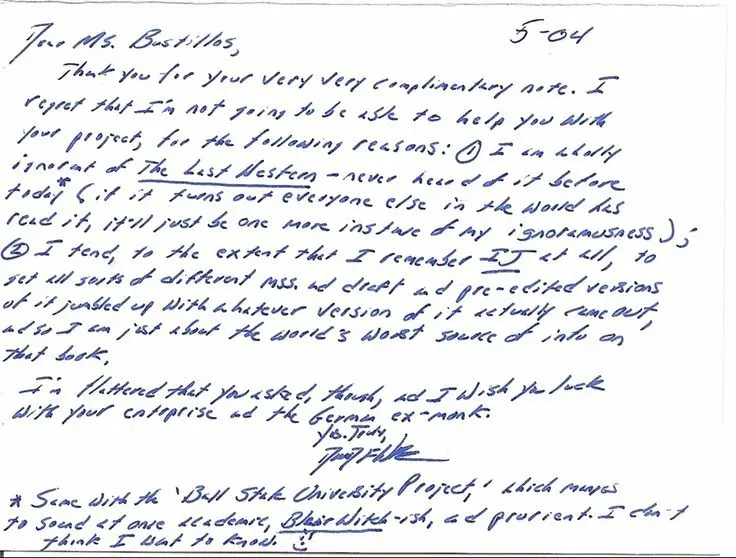 5-04
Dear Ms. Bustillos,
Thank you for your very very complimentary note. I
regret that I'm not going to be able to help you with
your project, for the following reasons: ① I am wholly
ignorant of The Last Western – never heard of it before
today* (if it turns out everyone else in the world has
read it, it'll just be one more instance of my ignoramusness);
② I tend, to the extent that I remember IJ at all, to
get all sorts of different mss. and draft and pre-edited versions
of it jumbled up with whatever version of it actually came out,
and so I am just about the world's worst source of info on
that book.
I'm flattered that you asked, though, and I wish you luck
with your enterprise and the German ex-monk.
Yrs. Truly,
* Same with the 'Ball State University Project,' which manages
to sound at once academic, Blair Witch-ish, and prurient. I don't
think I want to know.